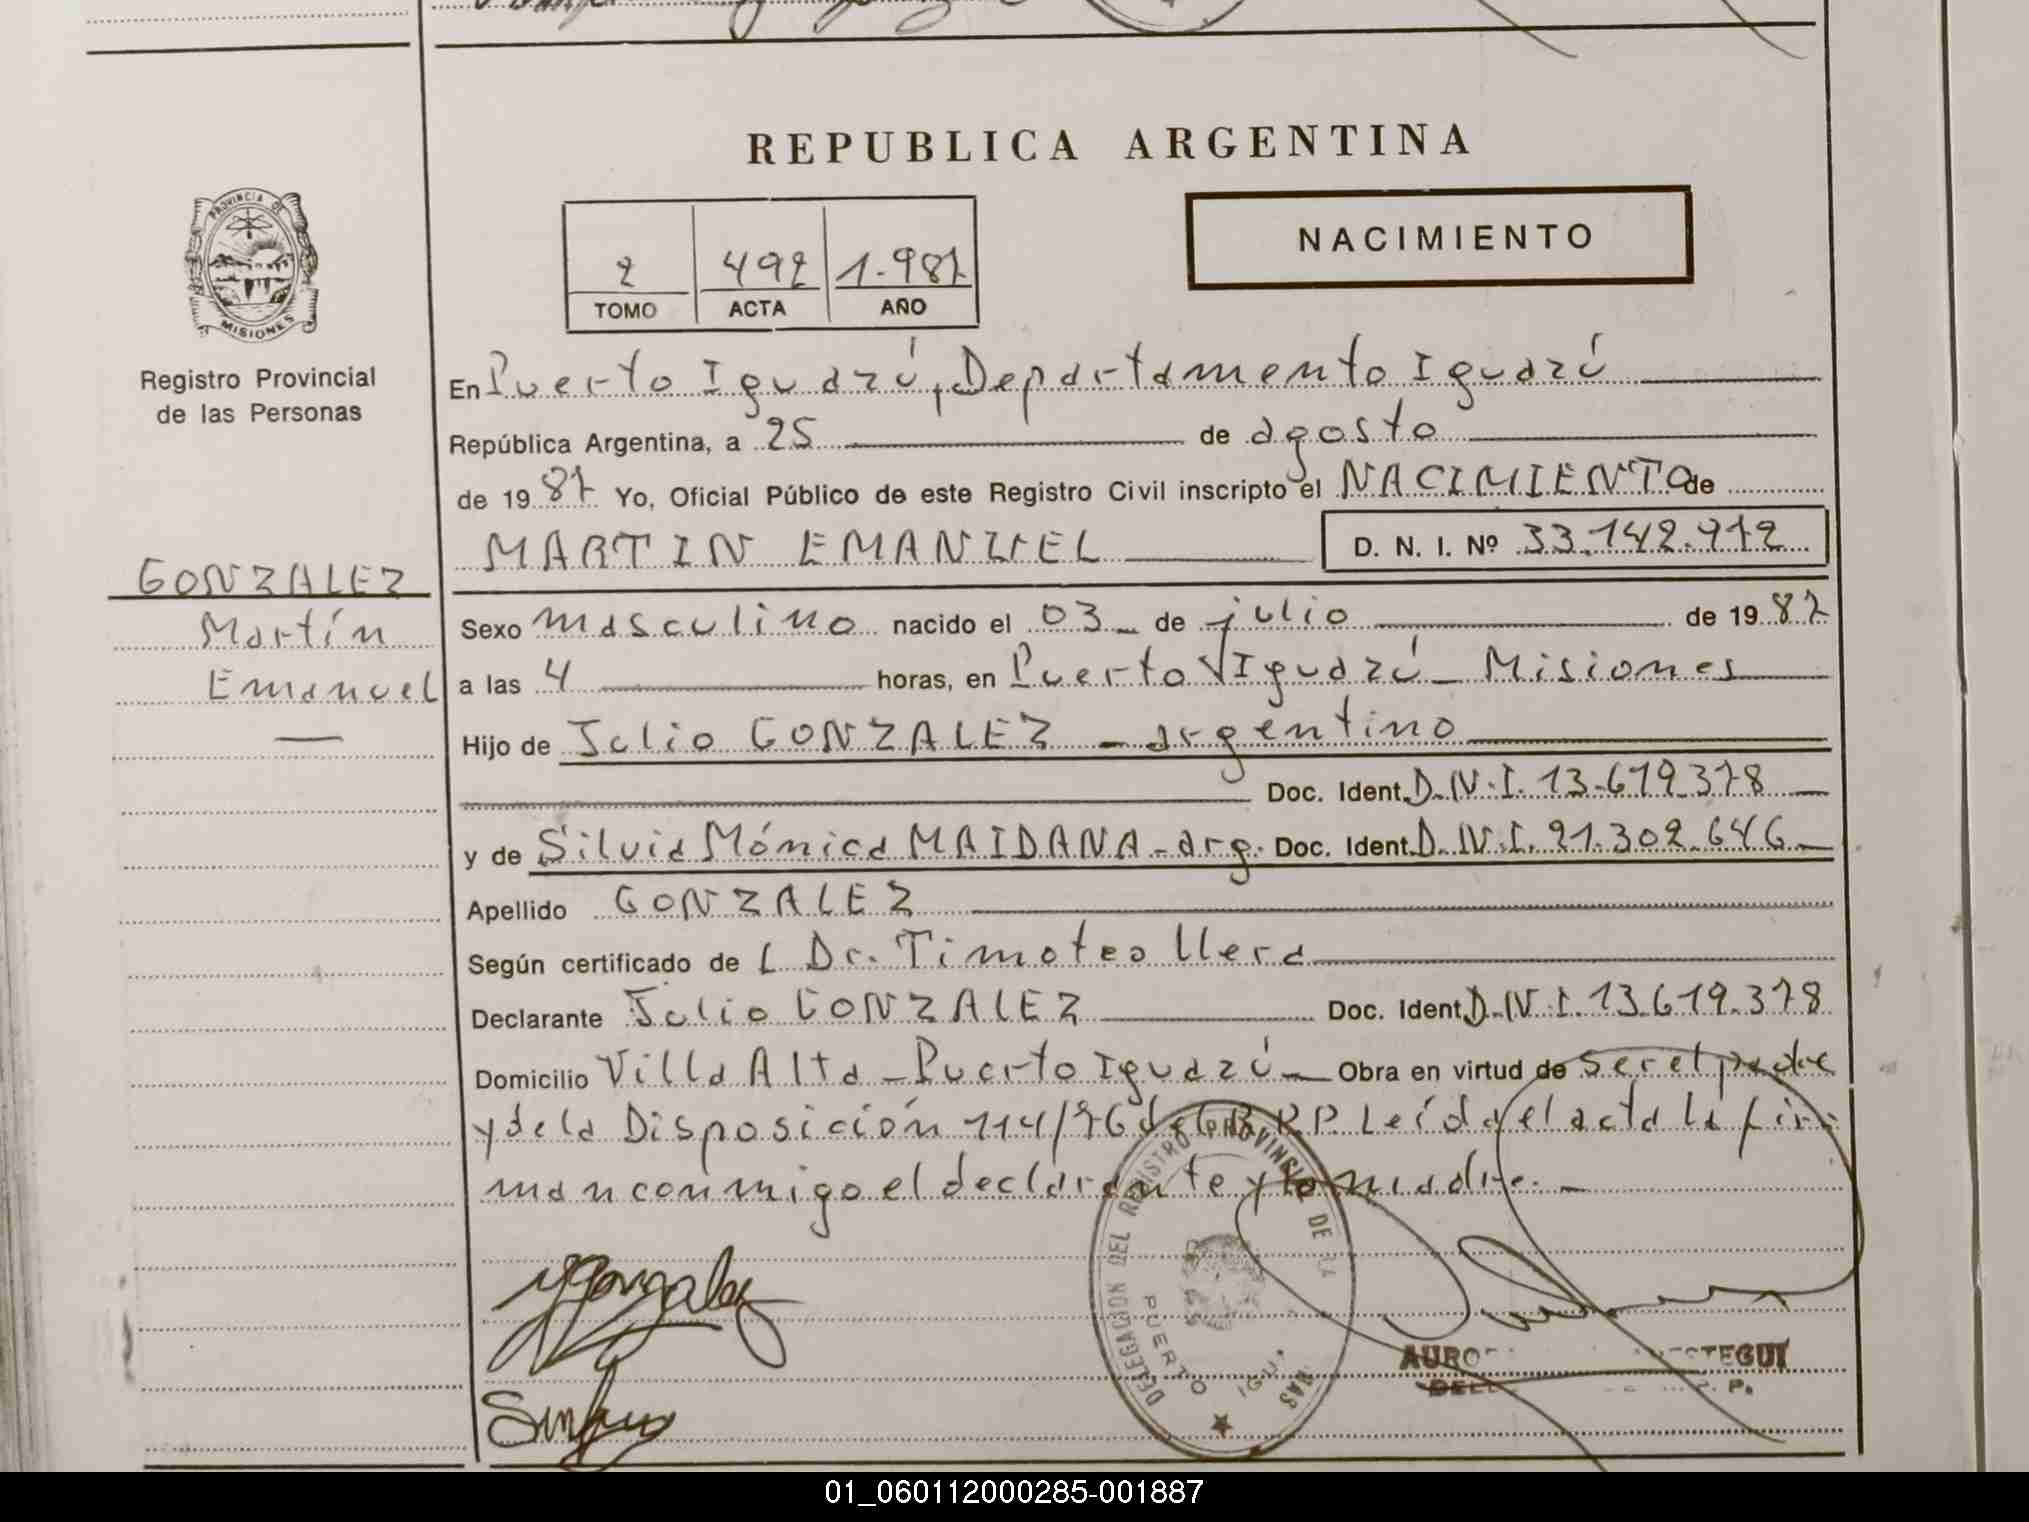 REPUBLICA ARGENTINA
NACIMIENTO
2 492 1.987
TOMO ACTA AÑO
PROVINCIA DE
MISIONES
Registro Provincial
de las Personas
En Puerto Iguazú, Departamento Iguazú
República Argentina, a 25 de agosto
de 1987 Yo, Oficial Público de este Registro Civil inscripto el NACIMIENTO de
MARTIN EMANUEL D. N. I. Nº 33.142.912
GONZALEZ
Martín
Emanuel
Sexo masculino nacido el 03 de julio de 1987
a las 4 horas, en Puerto Iguazú - Misiones
Hijo de Julio GONZALEZ - argentino
Doc. Ident. D.N.I. 13.619.378
y de Silvia Mónica MAIDANA - arg. Doc. Ident. D.N.I. 21.302.646
Apellido GONZALEZ
Según certificado de l Dr. Timoteo Llera
Declarante Julio GONZALEZ Doc. Ident. D.N.I. 13.619.378
Domicilio Villa Alta - Puerto Iguazú - Obra en virtud de ser el padre
y de la Disposición 114/76 del R.P. Leída el acta la fir-
man conmigo el declarante y la madre. -
Gonzalez
DELEGACION DEL REGISTRO PROVINCIAL DE LA
PUERTO
01_060112000285-001887